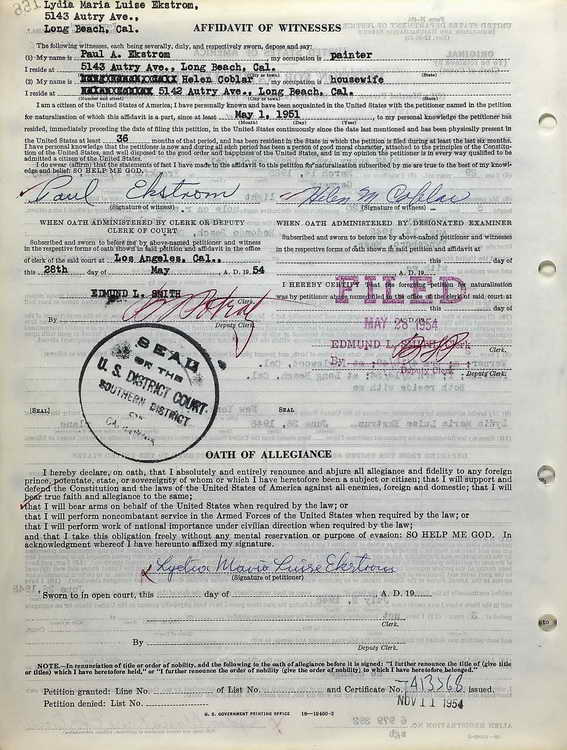 Lydia Maria Luise Ekstrom,
5143 Autry Ave.,
Long Beach, Cal.
AFFIDAVIT OF WITNESSES
The following witnesses, each being severally, duly, and respectively sworn, depose and say:
(1) My name is Paul A. Ekstrom, my occupation is painter
I reside at 5143 Autry Ave., Long Beach, Cal.
(City or town) (State)
(2) My name is Helen Coblar, my occupation is housewife
I reside at 5142 Autry Ave., Long Beach, Cal.
(Number and street) (City or town) (State)
I am a citizen of the United States of America; I have personally known and have been acquainted in the United States with the petitioner named in the petition
for naturalization of which this affidavit is a part, since at least May 1, 1951, to my personal knowledge the petitioner has
(Month) (Day) (Year)
resided, immediately preceding the date of filing this petition, in the United States continuously since the date last mentioned and has been physically present in
the United States at least 36 months of that period, and has been resident in the State in which the petition is filed during at least the last six months.
I have personal knowledge that the petitioner is now and during all such period has been a person of good moral character, attached to the principles of the Constitu-
tion of the United States, and well disposed to the good order and happiness of the United States, and in my opinion the petitioner is in every way qualified to be
admitted a citizen of the United States.
I do swear (affirm) that the statements of fact I have made in this affidavit to this petition for naturalization subscribed by me are true to the best of my knowl-
edge and belief: SO HELP ME GOD.
Paul Ekstrom Helen M. Coblar
(Signature of witness) (Signature of witness)
WHEN OATH ADMINISTERED BY CLERK OR DEPUTY
CLERK OF COURT
Subscribed and sworn to before me by above-named petitioner and witness
in the respective forms of oath shown in said petition and affidavit in the office
of clerk of the said court at Los Angeles, Cal.,
this 28th day of May, A. D. 1954
EDMUND L. SMITH
Clerk.
By
Deputy Clerk.
[SEAL]
SEAL
OF THE
U. S. DISTRICT COURT
SOUTHERN DISTRICT
WHEN OATH ADMINISTERED BY DESIGNATED EXAMINER
Subscribed and sworn to before me by above-named petitioner and witnesses
in the respective forms of oath shown in said petition and affidavit at
this day of
, A. D. 19
I HEREBY CERTIFY that the foregoing petition for naturalization
was by petitioner above named filed in the office of the clerk of said court at
this day of
FILED
MAY 28 1954
EDMUND L. SMITH, Clerk
Clerk.
By
Deputy Clerk
Deputy Clerk.
SEAL
OATH OF ALLEGIANCE
I hereby declare, on oath, that I absolutely and entirely renounce and abjure all allegiance and fidelity to any foreign
prince, potentate, state, or sovereignty of whom or which I have heretofore been a subject or citizen; that I will support and
defend the Constitution and the laws of the United States of America against all enemies, foreign and domestic; that I will
bear true faith and allegiance to the same;
that I will bear arms on behalf of the United States when required by the law; or
that I will perform noncombatant service in the Armed Forces of the United States when required by the law; or
that I will perform work of national importance under civilian direction when required by the law;
and that I take this obligation freely without any mental reservation or purpose of evasion: SO HELP ME GOD. In
acknowledgment whereof I have hereunto affixed my signature.
x Lydia Maria Luise Ekstrom
(Signature of petitioner)
Sworn to in open court, this day of , A. D. 19
Clerk.
By
Deputy Clerk.
NOTE.—In renunciation of title or order of nobility, add the following to the oath of allegiance before it is signed: "I further renounce the title of (give title
or titles) which I have heretofore held," or "I further renounce the order of nobility (give the order of nobility) to which I have heretofore belonged."
Petition granted: Line No. of List No. and Certificate No. 7413568 issued.
Petition denied: List No. NOV 11 1954
U. S. GOVERNMENT PRINTING OFFICE 16—19400-2